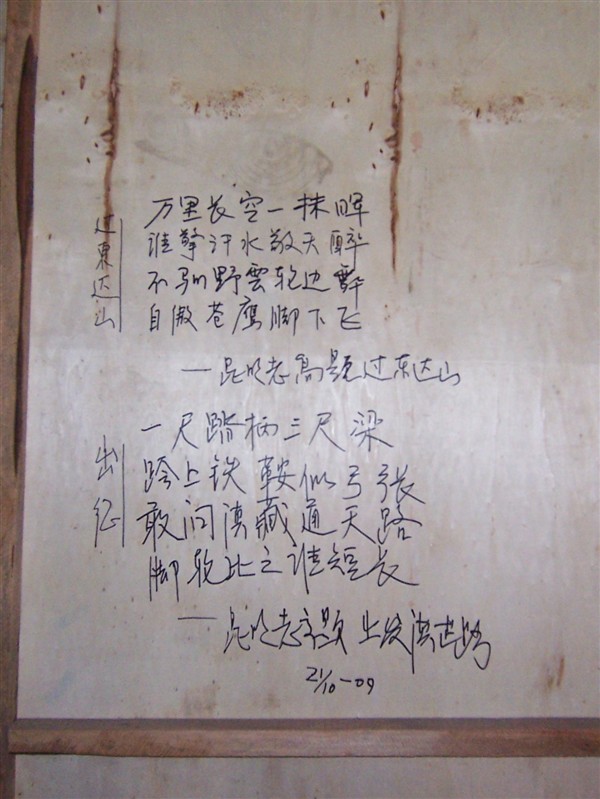 过東达山
万里长空一抹晖
谁擎汗水敬天醉
不驯野雲轮边舞
自傲苍鹰脚下飞
——昆明老高题过东达山
出征
一尺踏柄三尺梁
跨上铁鞍似弓张
敢问滇藏通天路
脚轮比之谁短长
——昆明老高题
21/10-09